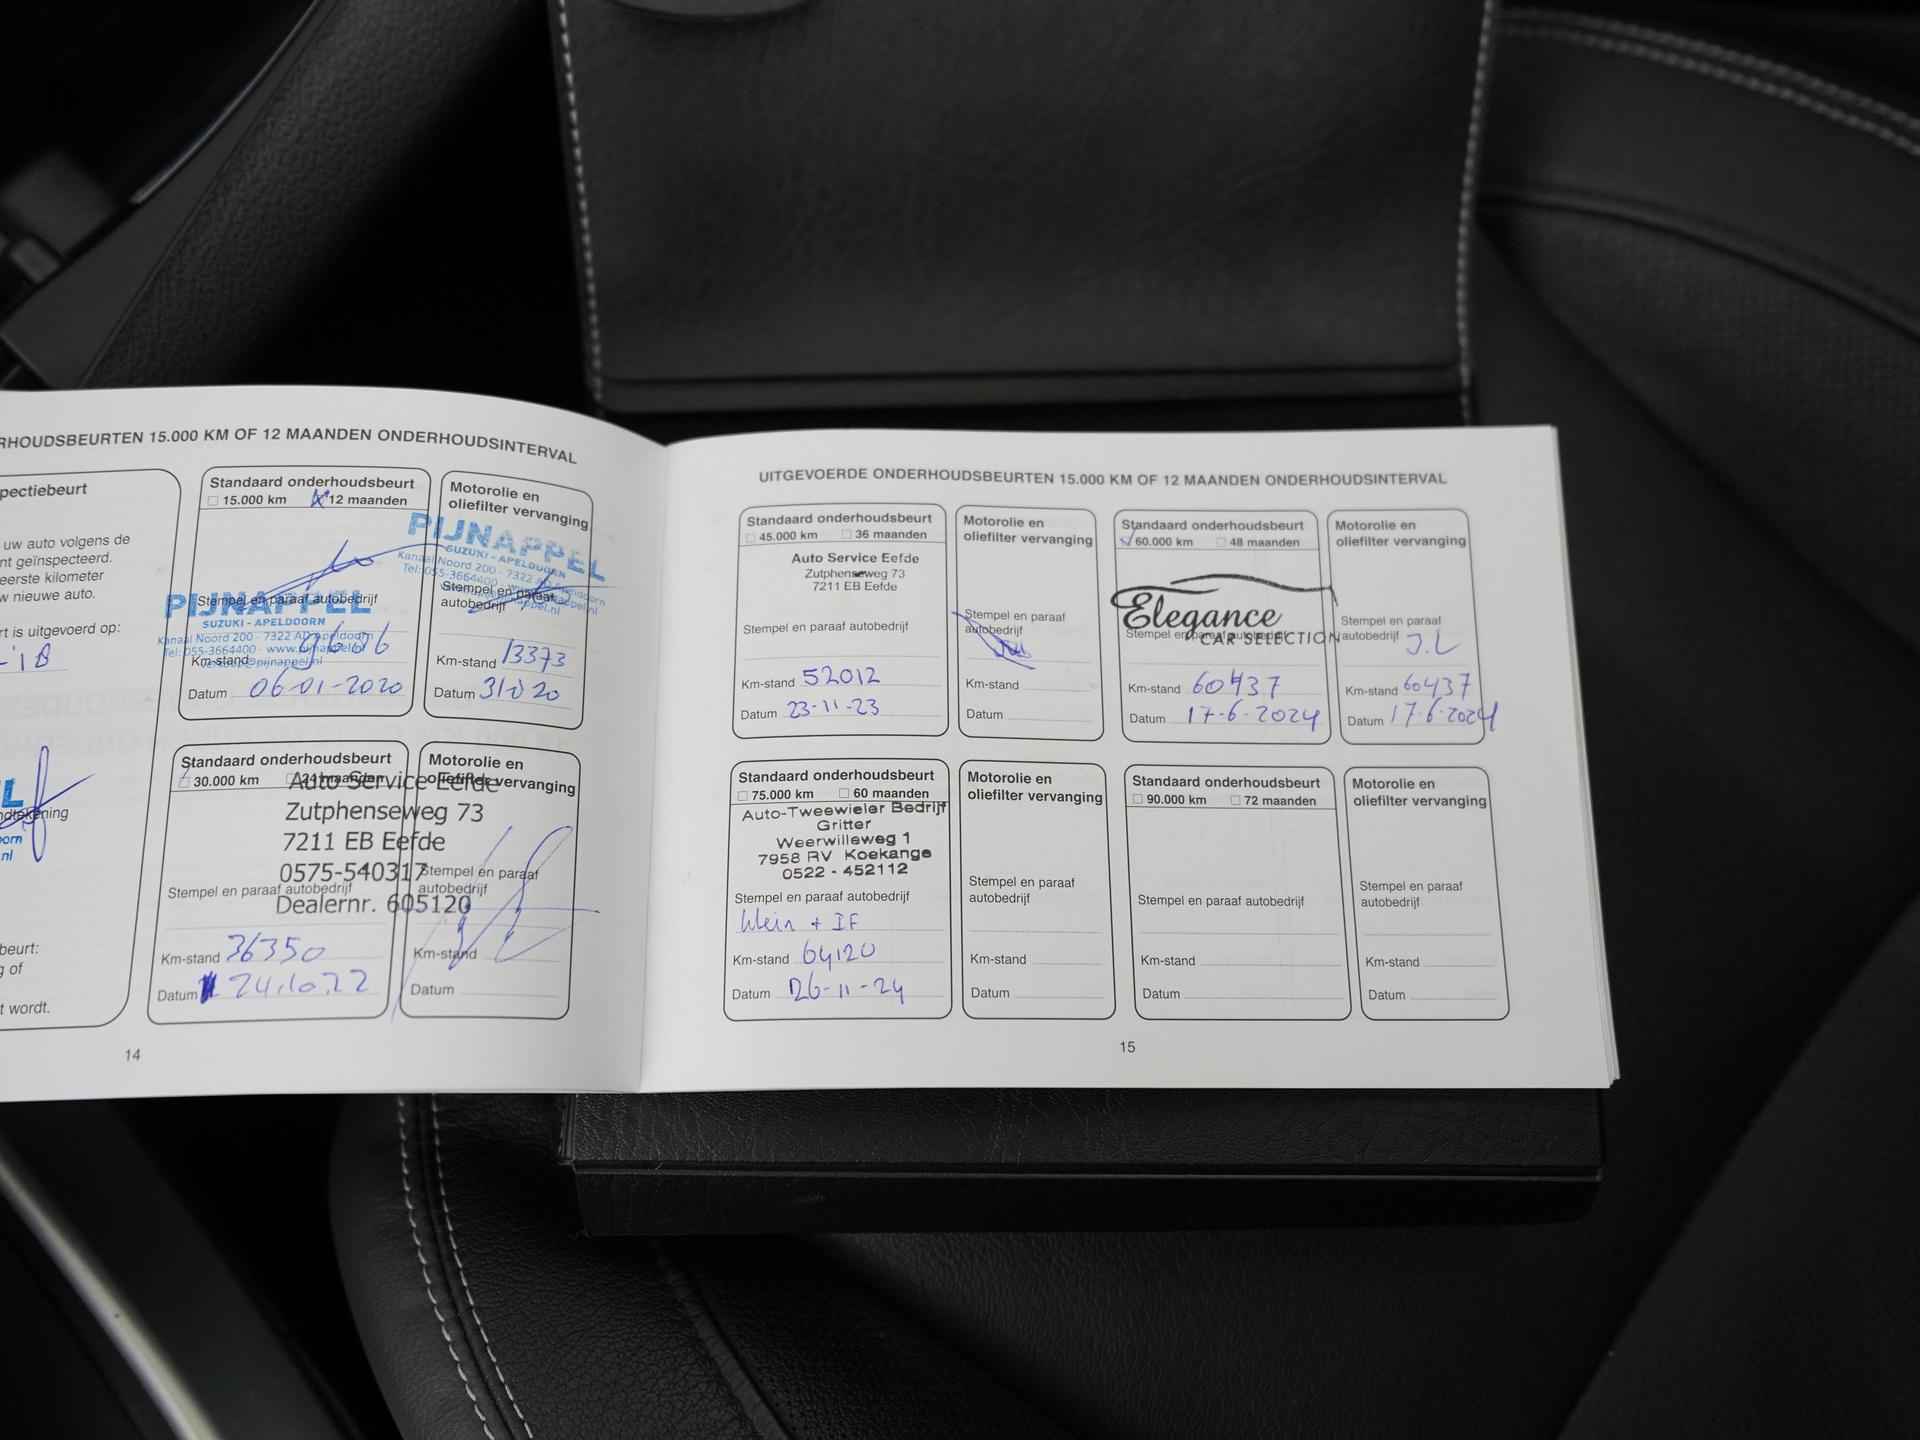 RHOUDSBEURTEN 15.000 KM OF 12 MAANDEN ONDERHOUDSINTERVAL
pectiebeurt
uw auto volgens de
nt geïnspecteerd.
eerste kilometer
w nieuwe auto.
rt is uitgevoerd op:
-'18
L
ndtekening
oorn
nl
beurt:
g of
t wordt.
Standaard onderhoudsbeurt
15.000 km 12 maanden
Stempel en paraaf autobedrijf
PIJNAPPEL
SUZUKI - APELDOORN
Kanaal Noord 200 - 7322 AD Apeldoorn
Tel: 055-3664400 - www.pijnappel.nl
Km-stand
Datum 06-01-2020
Motorolie en
oliefilter vervanging
PIJNAPPEL
SUZUKI - APELDOORN
Kanaal Noord 200 - 7322 AD Apeldoorn
Tel: 055-3664400
Stempel en paraaf
autobedrijf
Km-stand 13373
Datum
Standaard onderhoudsbeurt
30.000 km 24 maanden
Auto Service Eefde
Zutphenseweg 73
7211 EB Eefde
0575-540317
Stempel en paraaf autobedrijf
Dealernr. 605120
Km-stand 36350
Datum 24.10.22
Motorolie en
oliefilter vervanging
Stempel en paraaf
autobedrijf
Km-stand
Datum
14
UITGEVOERDE ONDERHOUDSBEURTEN 15.000 KM OF 12 MAANDEN ONDERHOUDSINTERVAL
Standaard onderhoudsbeurt
45.000 km 36 maanden
Auto Service Eefde
Zutphenseweg 73
7211 EB Eefde
Stempel en paraaf autobedrijf
Km-stand 52012
Datum 23-11-23
Motorolie en
oliefilter vervanging
Stempel en paraaf
autobedrijf
Km-stand
Datum
Standaard onderhoudsbeurt
60.000 km 48 maanden
Elegance
CAR SELECTION
Stempel en paraaf autobedrijf
Km-stand 60437
Datum 17-6-2024
Motorolie en
oliefilter vervanging
Stempel en paraaf
autobedrijf J.L
Km-stand 60437
Datum 17-6-2024
Standaard onderhoudsbeurt
75.000 km 60 maanden
Auto-Tweewieler Bedrijf
Gritter
Weerwilleweg 1
7958 RV Koekange
0522 - 452112
Stempel en paraaf autobedrijf
klein + IF
Km-stand 64120
Datum 26-11-24
Motorolie en
oliefilter vervanging
Stempel en paraaf
autobedrijf
Km-stand
Datum
Standaard onderhoudsbeurt
90.000 km 72 maanden
Stempel en paraaf autobedrijf
Km-stand
Datum
Motorolie en
oliefilter vervanging
Stempel en paraaf
autobedrijf
Km-stand
Datum
15